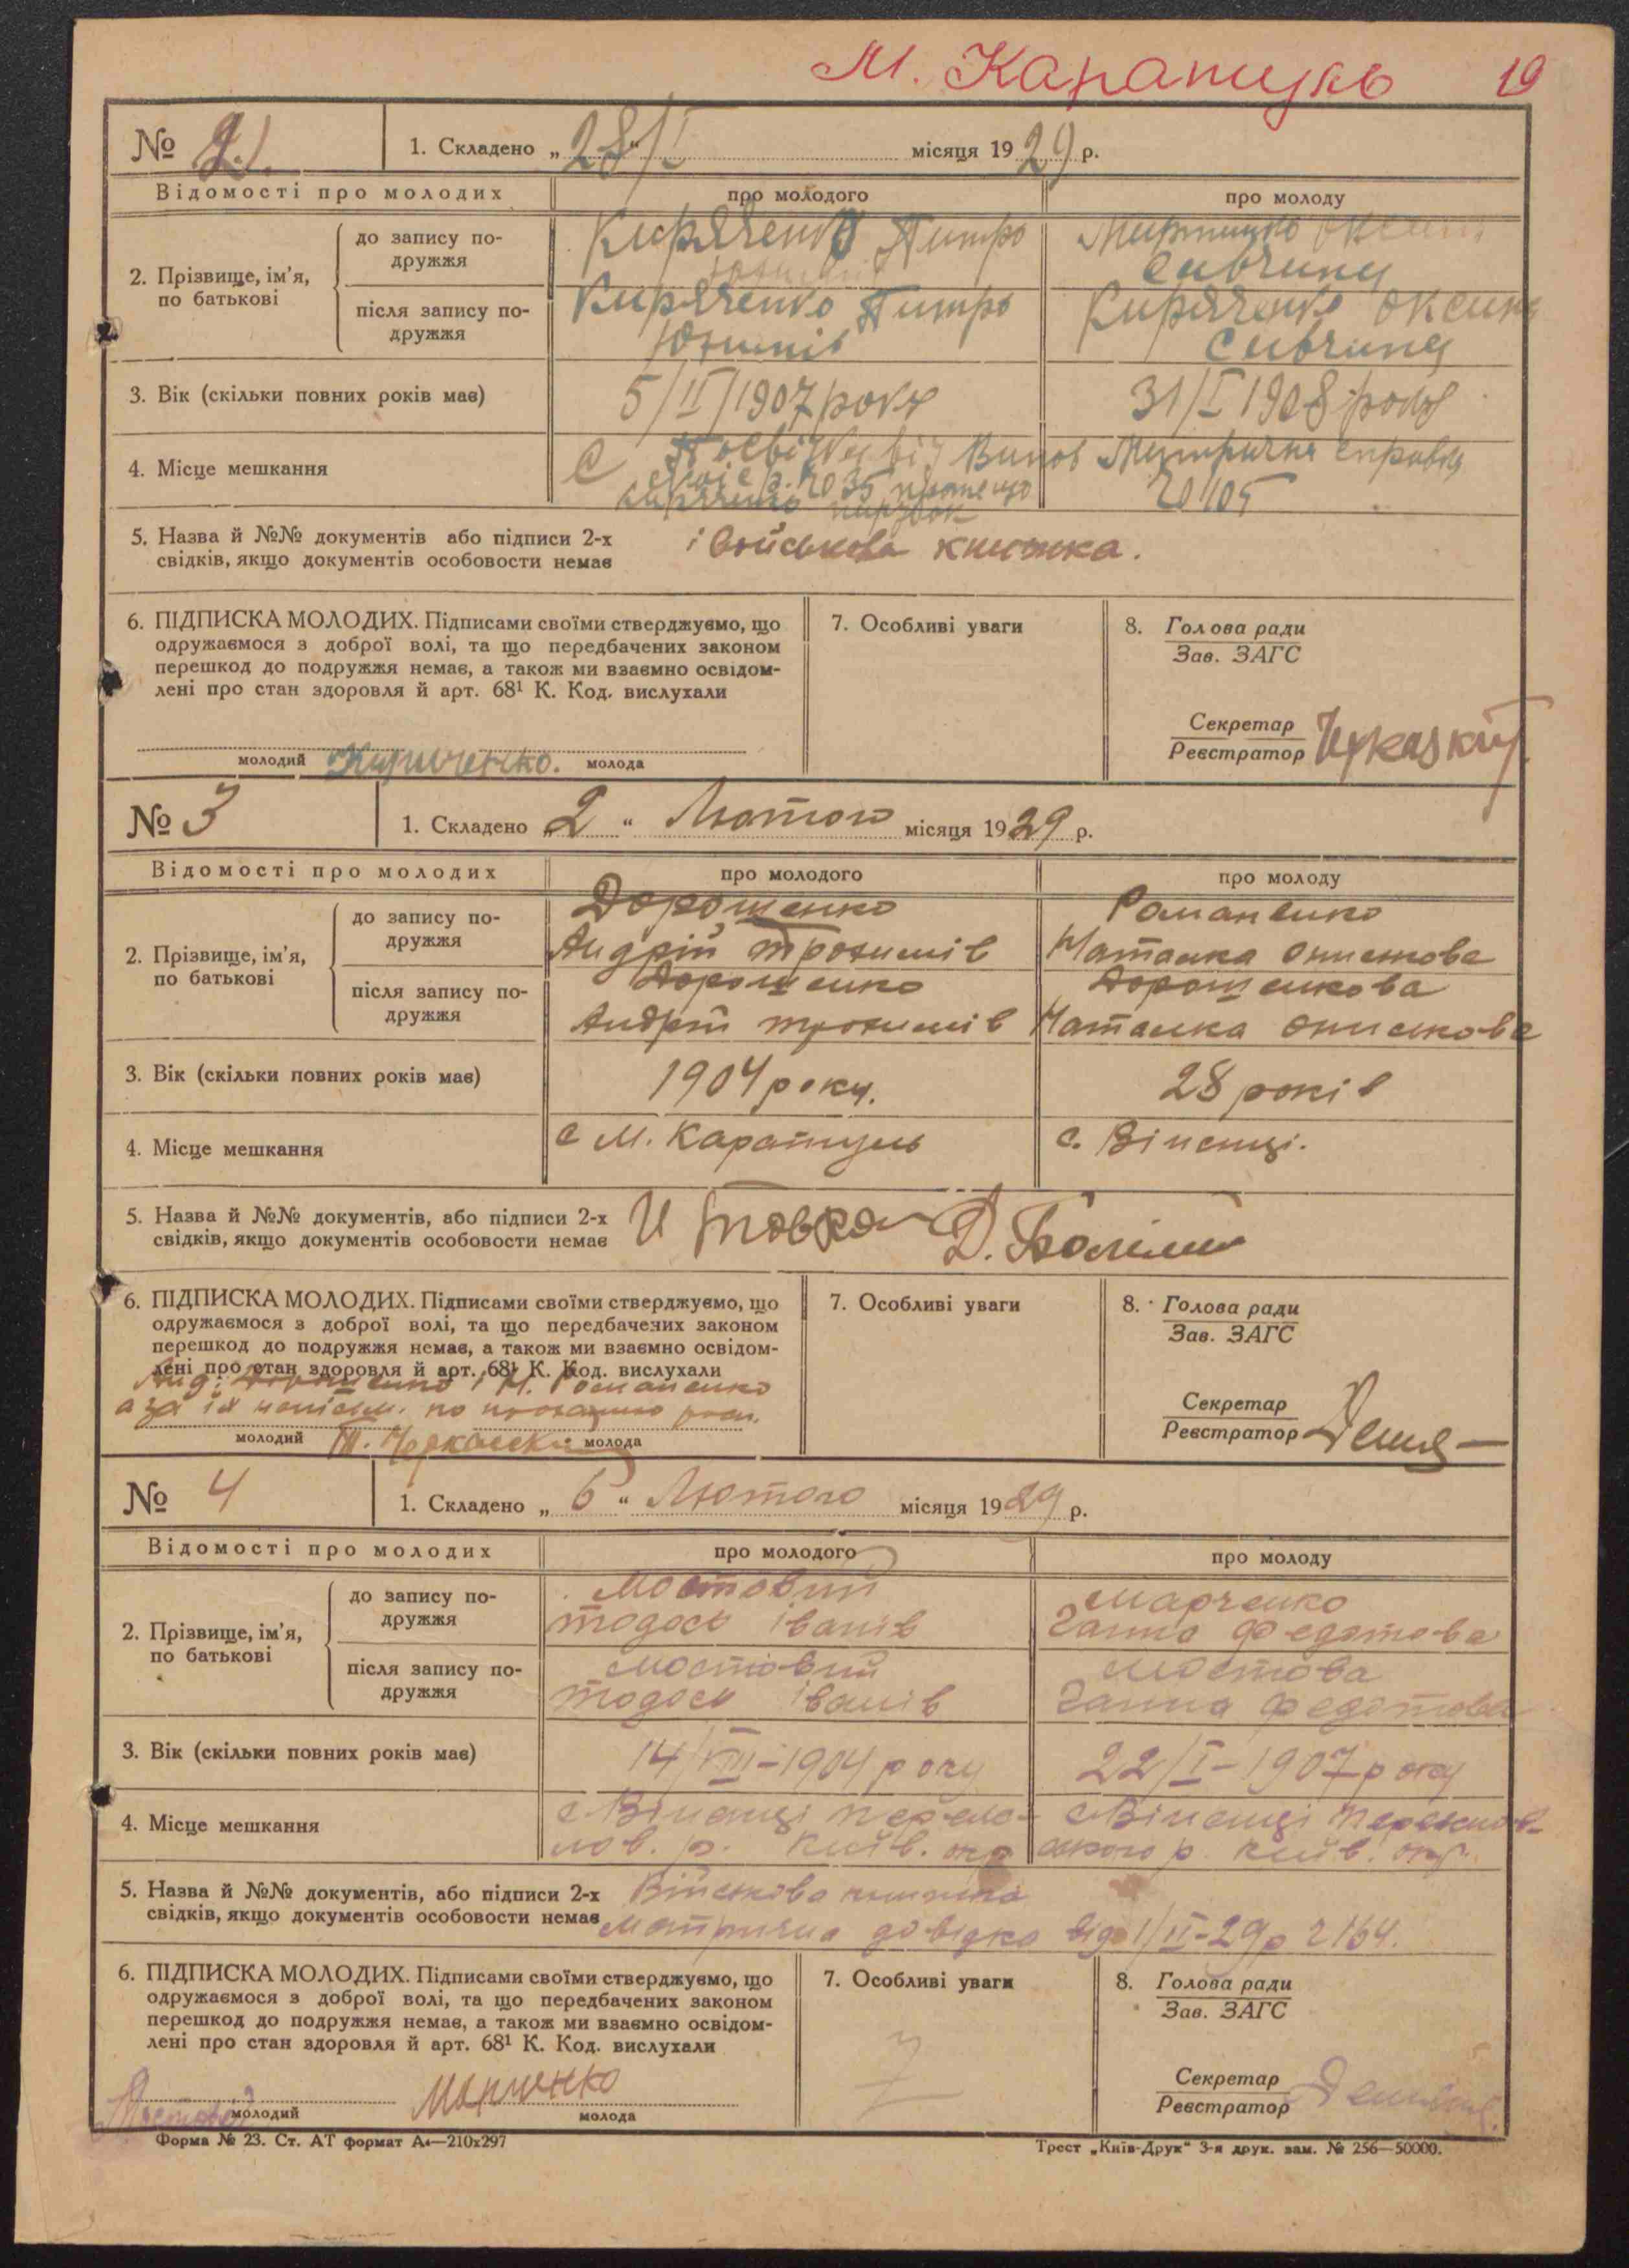 М. Каратуль 19
№ 2. 1. Складено „28/I“ місяця 1929 р.
Відомості про молодих про молодого про молоду
2. Прізвище, ім’я, по батькові
до запису подружжя
Киряченко Питро
Оксина
Савчина
після запису подружжя
Киряченко Питро
Киряченко Оксина
Савчина
3. Вік (скільки повних років має) 5/II/1907 року 31/I 1908 року
4. Місце мешкання
Митрична справка
5. Назва й №№ документів або підписи 2-х
свідків, якщо документів особовости немає
і військова книжка.
6. ПІДПИСКА МОЛОДИХ. Підписами своїми стверджуємо, що
одружаємося з доброї волі, та що передбачених законом
перешкод до подружжя немає, а також ми взаємно освідом-
лені про стан здоровля й арт. 68¹ К. Код. вислухали
молодий молода
7. Особливі уваги
8. Голова ради
Зав. ЗАГС
Секретар
Реєстратор
№ 3 1. Складено „2“ Лютого місяця 1929 р.
Відомості про молодих про молодого про молоду
2. Прізвище, ім’я, по батькові
до запису подружжя
Дорошенко Романенко
Андрій Трохимів Наталка Онискова
після запису подружжя
Дорошенко Дорошенкова
Андрій Трохимів Наталка Онискова
3. Вік (скільки повних років має) 1904 року. 28 років
4. Місце мешкання с М. Каратуль с. Віненці.
5. Назва й №№ документів, або підписи 2-х
свідків, якщо документів особовости немає
6. ПІДПИСКА МОЛОДИХ. Підписами своїми стверджуємо, що
одружаємося з доброї волі, та що передбачених законом
перешкод до подружжя немає, а також ми взаємно освідом-
лені про стан здоровля й арт. 68¹ К. Код. вислухали
Анд. Дорошенко і Н. Романенко
а за їх
молодий молода
7. Особливі уваги
8. Голова ради
Зав. ЗАГС
Секретар
Реєстратор
№ 4 1. Складено „6“ Лютого місяця 1929 р.
Відомості про молодих про молодого про молоду
2. Прізвище, ім’я, по батькові
до запису подружжя
Мостовий Марченко
Тодось Іванів Ганна Федотова
після запису подружжя
Мостовий Мостова
Тодось Іванів Ганна Федотова
3. Вік (скільки повних років має) 14/VIII-1904 року 22/I-1907 року
4. Місце мешкання с Віненці с Віненці
р. Київ. окр р. Київ. окр.
5. Назва й №№ документів, або підписи 2-х
свідків, якщо документів особовости немає
Військова книжка
Метрична довідка від 1/II-29 р 164.
6. ПІДПИСКА МОЛОДИХ. Підписами своїми стверджуємо, що
одружаємося з доброї волі, та що передбачених законом
перешкод до подружжя немає, а також ми взаємно освідом-
лені про стан здоровля й арт. 68¹ К. Код. вислухали
Мостовой Марченко
молодий молода
7. Особливі уваги
8. Голова ради
Зав. ЗАГС
Секретар
Реєстратор
Форма № 23. Ст. АТ формат А₄—210х297
Трест „Київ-Друк“ 3-я друк. зам. № 256—50000.